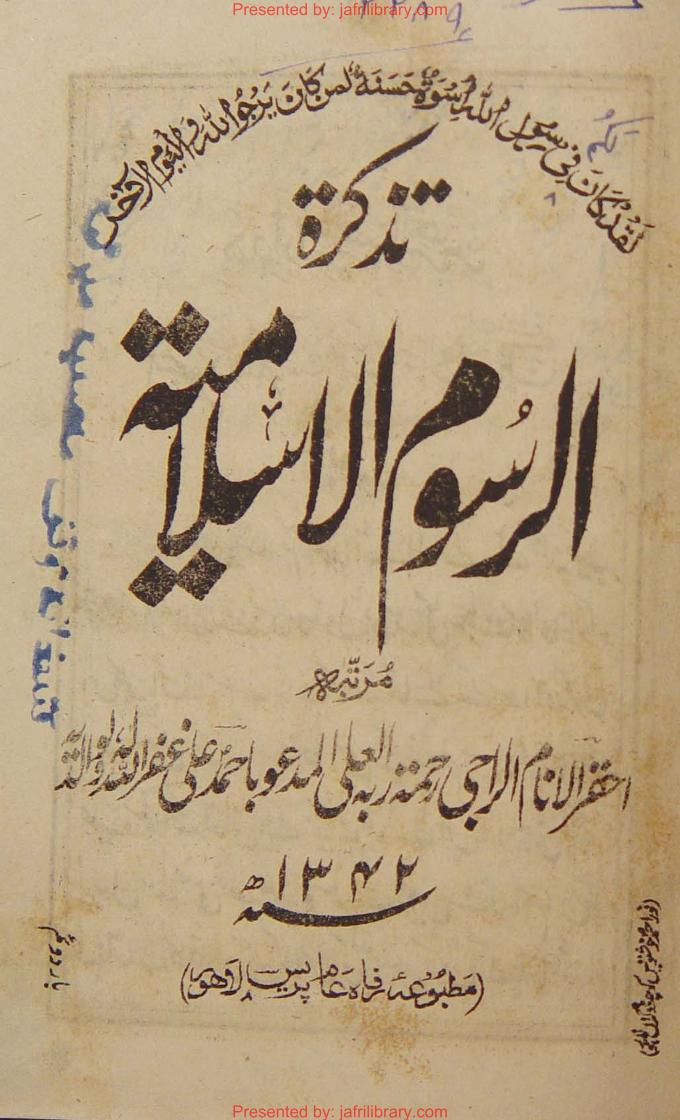 Presented by: jafrilibrary.com
لَقَدْ كَانَ لَكُمْ فِي رَسُولِ اللهِ اُسْوَةٌ حَسَنَةٌ لِمَنْ كَانَ يَرْجُوا اللهَ وَ الْيَوْمَ الْاٰخِرَ
تذکرة
الرسُوم الاسلامیة
مُرتّبہ
احقر الانام الراجی رحمة ربہ العلی المدعو باحمد علی غفر اللہ لہ ولوالدیہ
۱۳۴۲ھ
سنہ
(مطبُوعۂ رفاہ عام پریس لاہور)
بار دوئم
Presented by: jafrilibrary.com